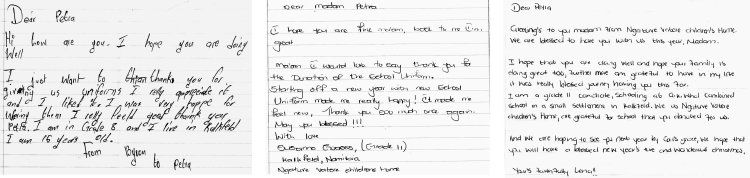 Dear Petra
Hi how are you. I hope you are doing
Well
I just want to thanks you for
giving us uniforms I really appreciate it
and I liked it. I was very happe for
wering them I really feeld great thank you
Petra. I am in Grade 8 and I live in Kalkfeld
I am 15 years old.
From Byron
to Petra
Dear madam Petra
I hope you are fine madam, back to me I'm
great
madam I would love to say thank you for
the Duration of the School Uniform.
Starting off a new year with new School
Uniform made me really happy! It made me
feel new, Thank you soo much once again.
May you blessed !!!
With love
(Grade 11)
Kalkfeld, Namibia
Ngatuve Vatere childrens Home
Dear Petra
Greeting's to you madam from Ngatuve Vatere children's Home.
We are blessed to have you with us this year, Madam.
I hope that you are doing well and hope your family is
doing great too, further more am grateful to have in my life
it was really blessed journey having you this far.
I am a grade 11 candidate, Schooling at Combined
school in a small settlement in Kalkfeld. We as Ngatuve Vatere
children's Home, are grateful for school that you donated for us.
And we are hoping to see you next year by God's grace, we hope that
you will have a blessed new year's eve and wonderful christmas.
Your's faithfully Lena!